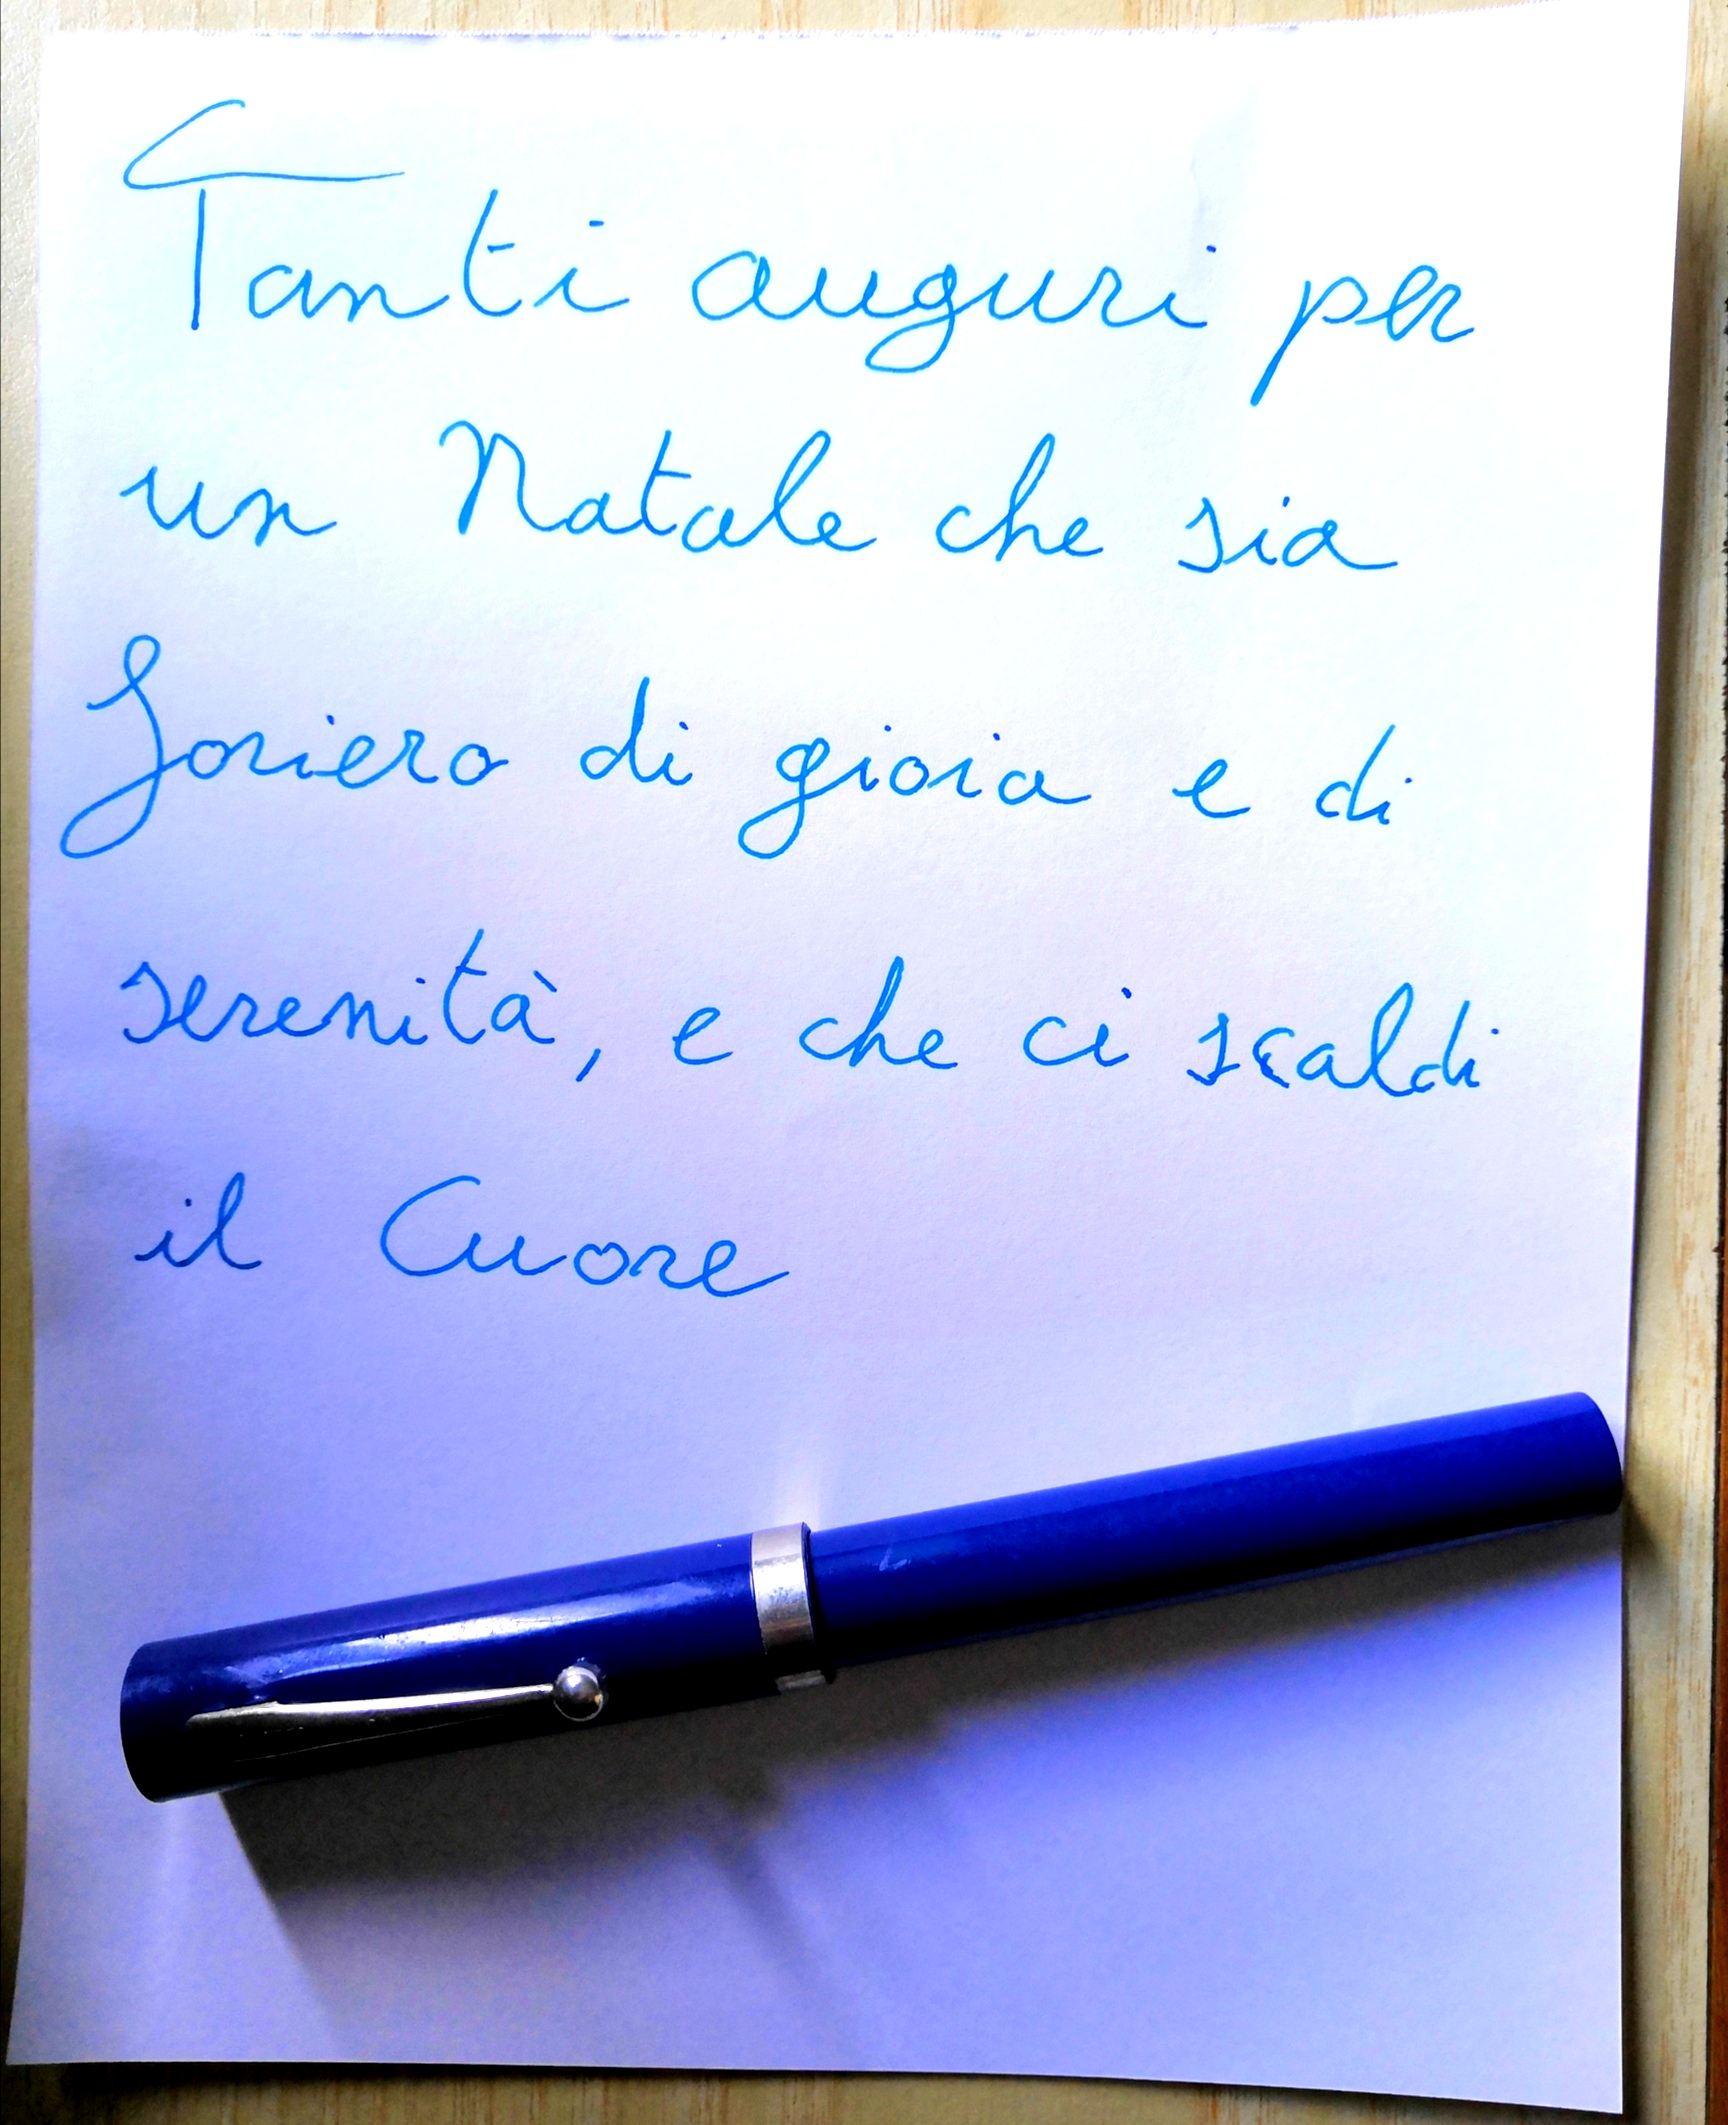 Tanti auguri per
un Natale che sia
foriero di gioia e di
serenità, e che ci scaldi
il Cuore